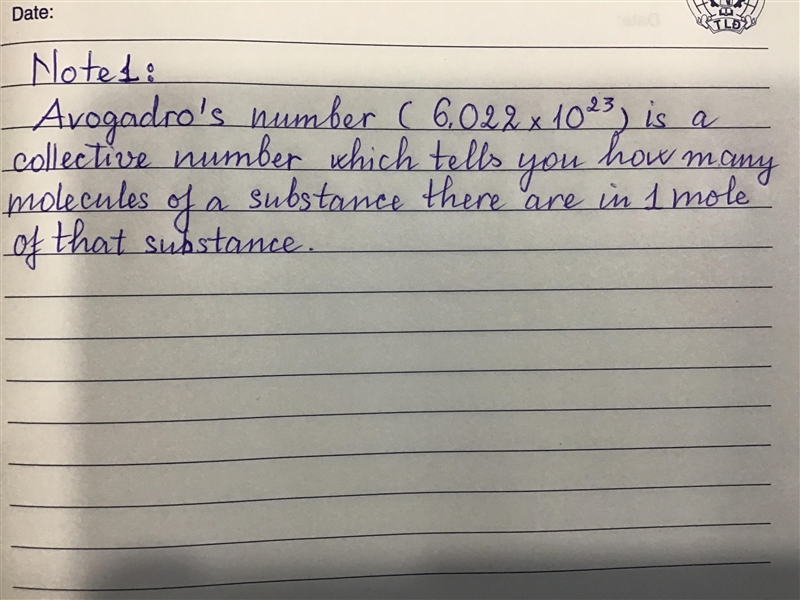 Date:
TLĐ
Note1:
Avogadro's number (6.022 x 10²³) is a
collective number which tells you how many
molecules of a substance there are in 1 mole
of that substance.